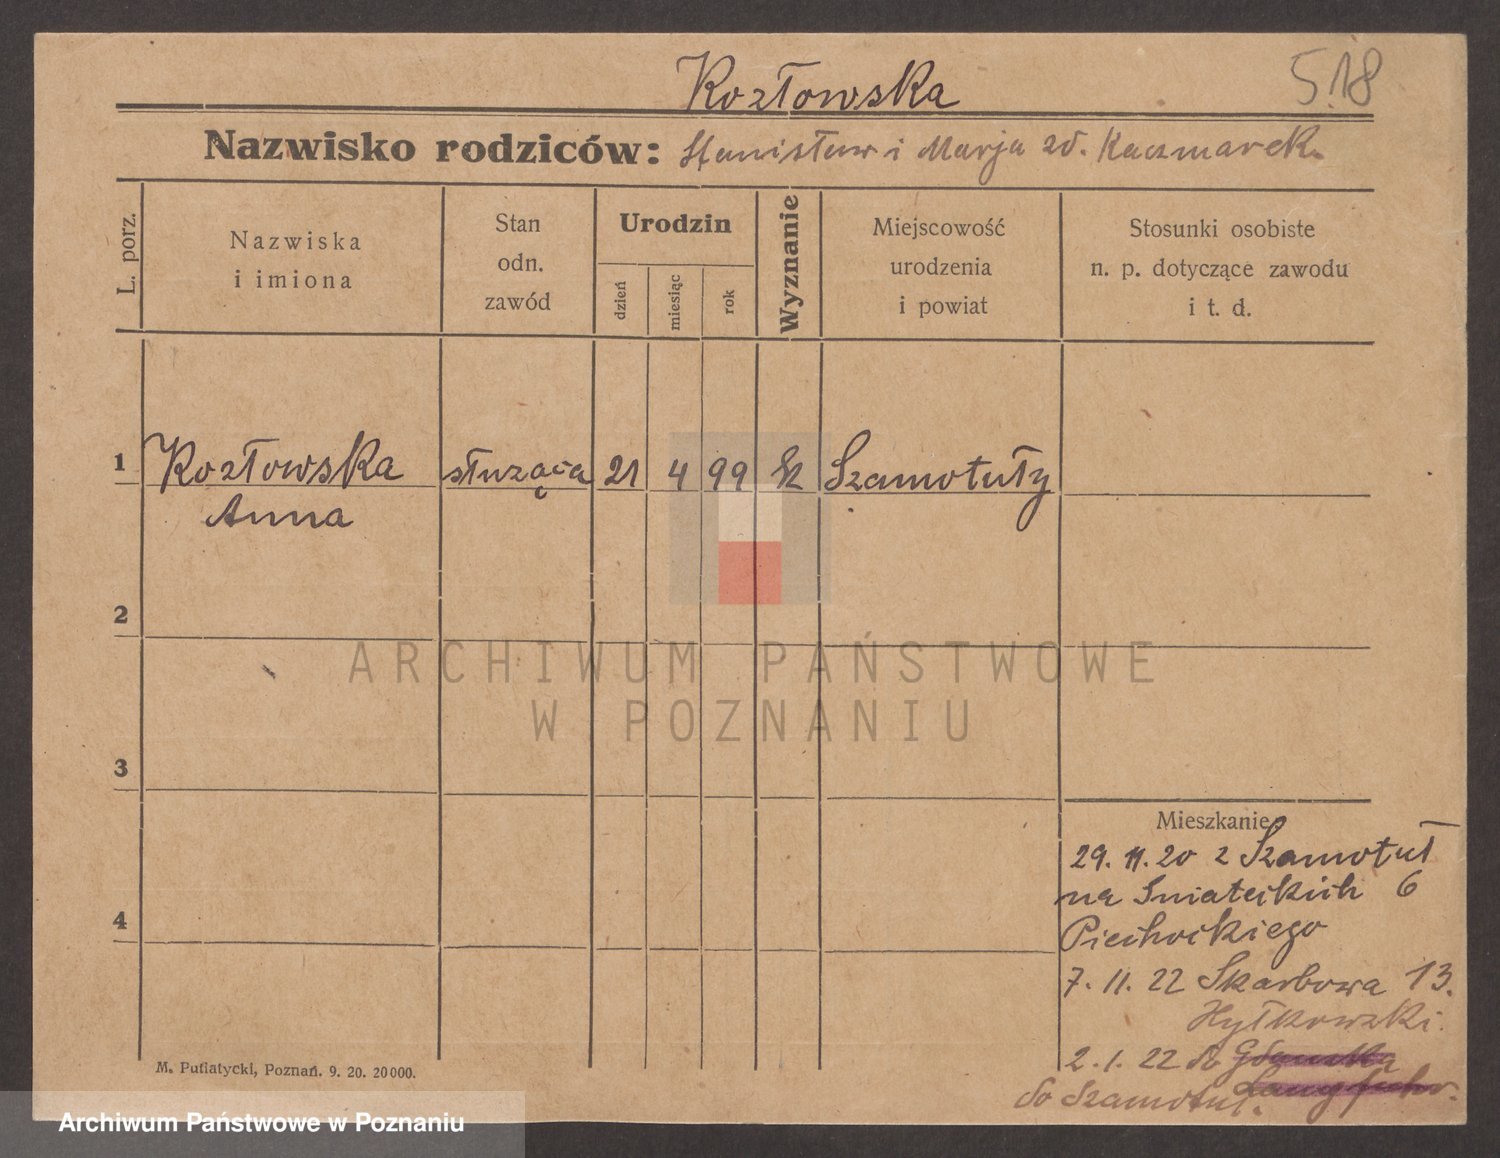 Kozłowska
518
Nazwisko rodziców: Stanisław i Marja zd. Kaczmarek.
L. porz.
Nazwiska
i imiona
Stan
odn.
zawód
Urodzin
dzień
miesiąc
rok
Wyznanie
Miejscowość
urodzenia
i powiat
Stosunki osobiste
n. p. dotyczące zawodu
i t. d.
1 Kozłowska służąca 21 4 99 Szamotuły
Anna
2
ARCHIWUM PAŃSTWOWE
W POZNANIU
3
Mieszkanie
29. 11. 20 z Szamotuł
na Śniateckich 6
Piechockiego
4
7. 11. 22 Skarbowa 13.
Hyłkowski.
2. 1. 22 do Gdańska
Langfuhr.
do Szamotuł.
M. Putiatycki, Poznań. 9. 20. 20000.
Archiwum Państwowe w Poznaniu